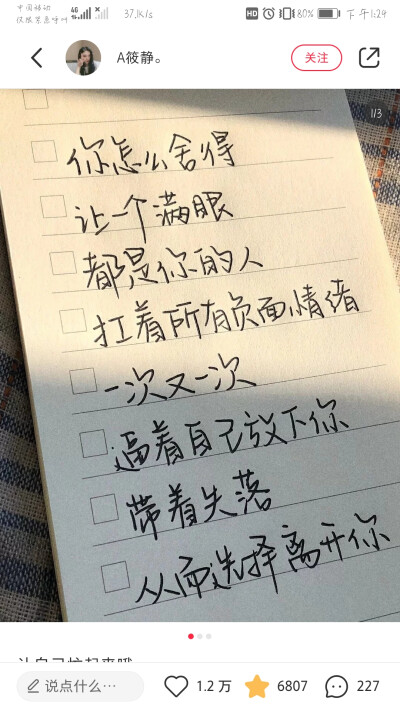 中国移动
仅限紧急呼叫
4G
37.1K/s
HD
80%
下午1:29
A筱静。
关注
1/3
你怎么舍得
让一个满眼
都是你的人
扛着所有负面情绪
一次又一次
逼着自己放下你
带着失落
从而选择离开你
让自己忙起来哦
说点什么…
1.2万
6807
227